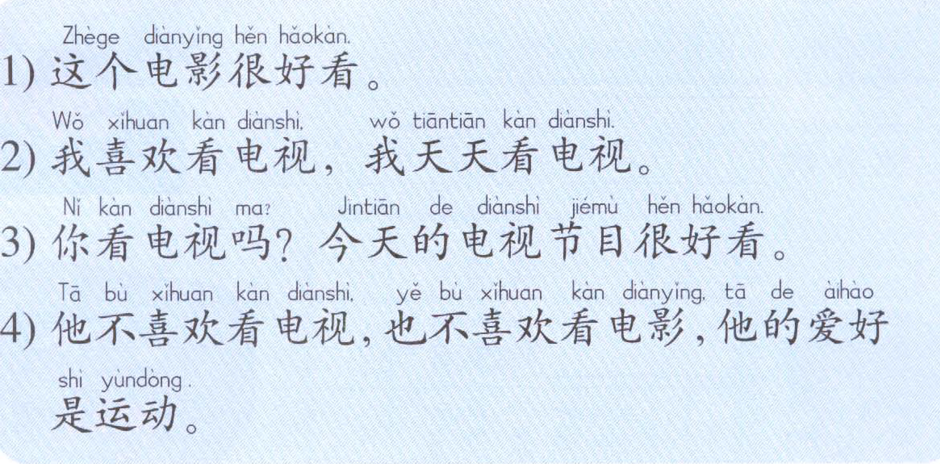 Zhège diànyǐng hěn hǎokàn.
1) 这个电影很好看。
Wǒ xǐhuan kàn diànshì, wǒ tiāntiān kàn diànshì.
2) 我喜欢看电视，我天天看电视。
Nǐ kàn diànshì ma? Jīntiān de diànshì jiémù hěn hǎokàn.
3) 你看电视吗？今天的电视节目很好看。
Tā bù xǐhuan kàn diànshì, yě bù xǐhuan kàn diànyǐng, tā de àihào
4) 他不喜欢看电视，也不喜欢看电影，他的爱好
shì yùndòng.
是运动。